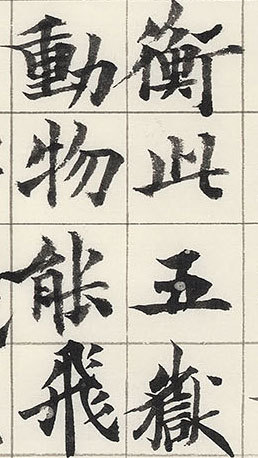 衡此五嶽
動物能飛